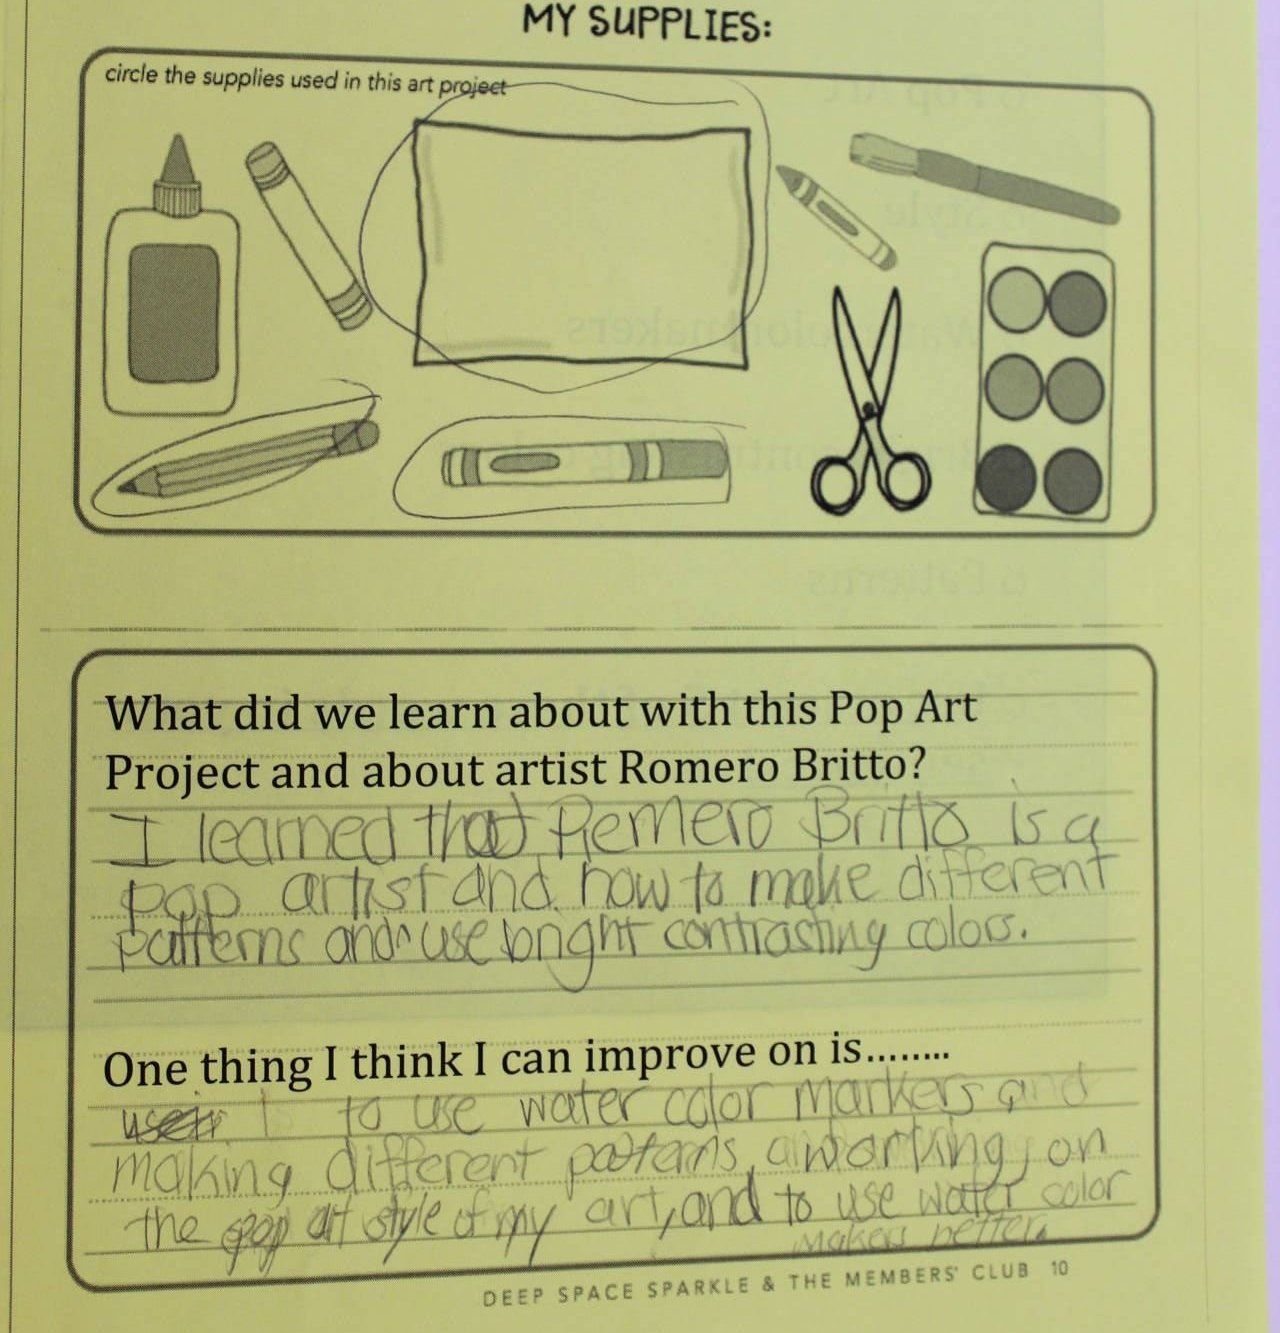 MY SUPPLIES:
circle the supplies used in this art project
What did we learn about with this Pop Art
Project and about artist Romero Britto?
I learned that Remero Britto is a
pop artist and how to make different
patterns and use bright contrasting colors.
One thing I think I can improve on is........
to use water color markers and
making different patterns, working on
the pop art style of my art, and to use water color
makers better.
DEEP SPACE SPARKLE & THE MEMBERS' CLUB 10